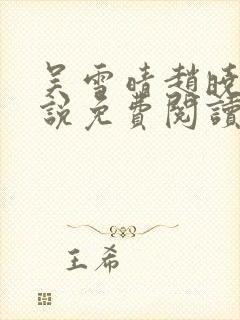 吴雪晴趙晓
說免費閱讀
王希